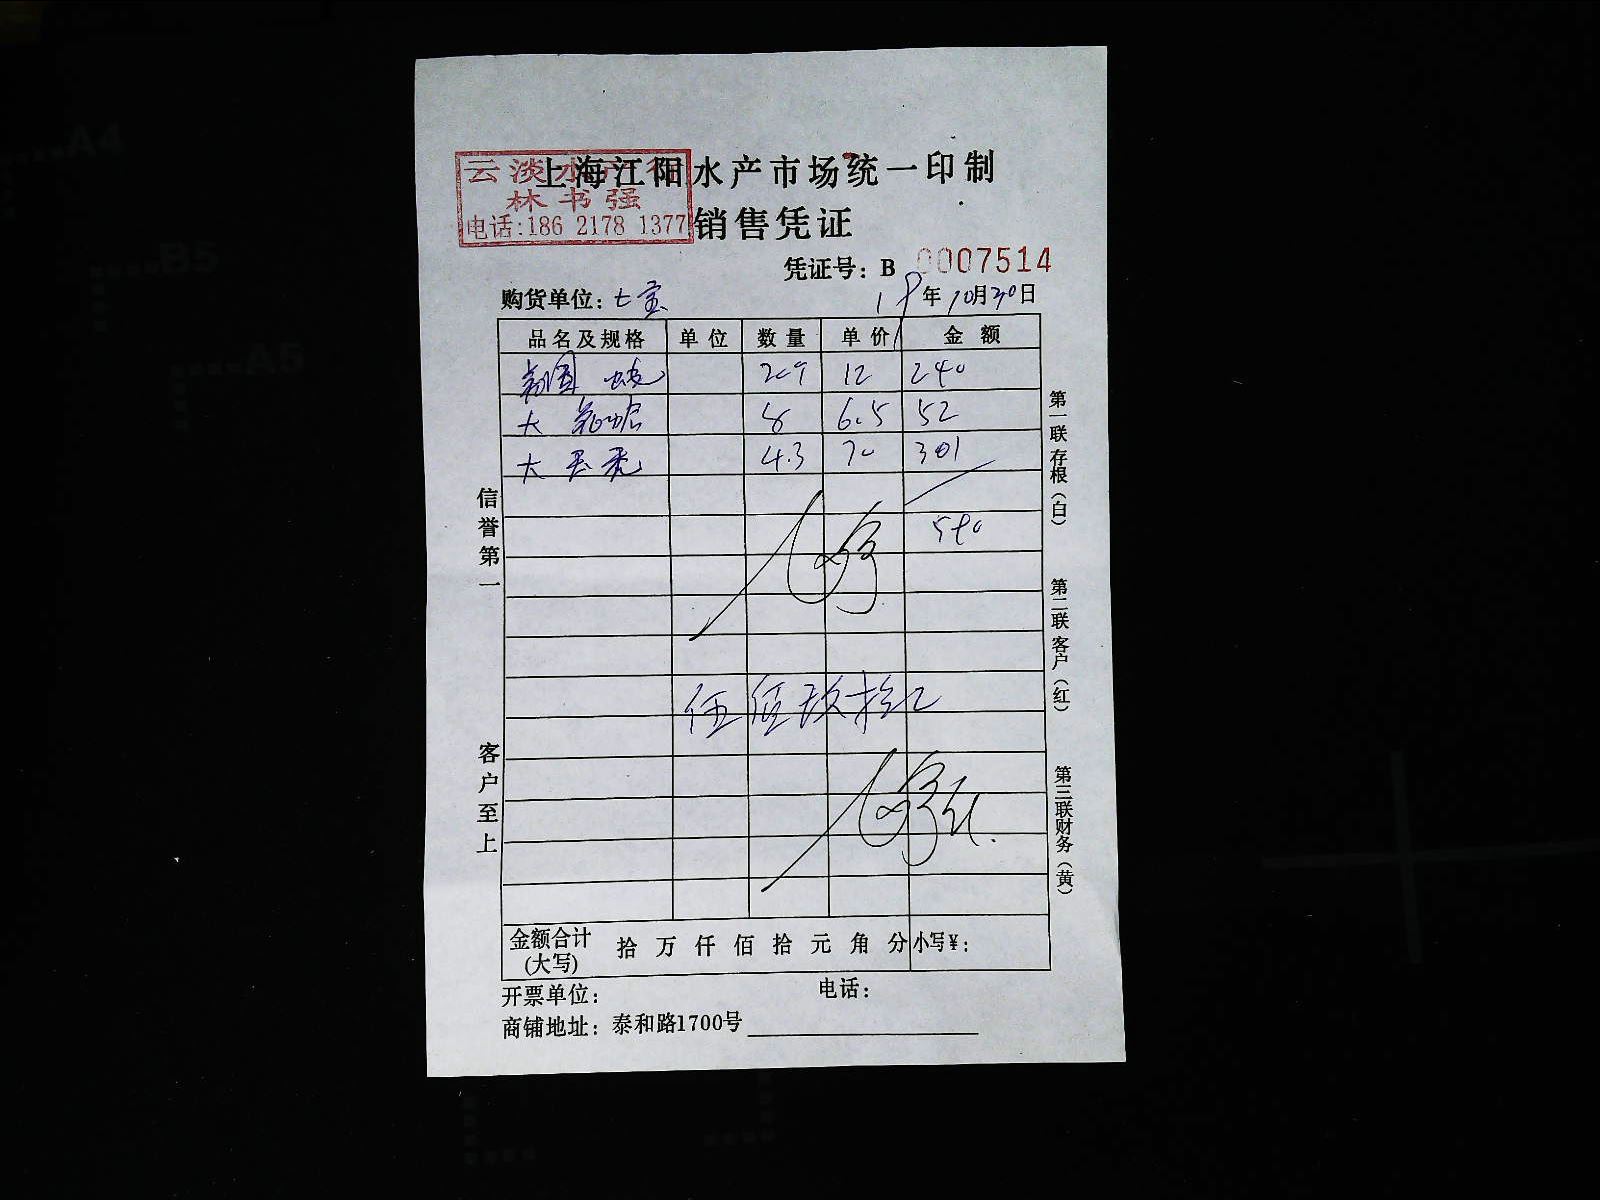 上海江阳水产市场统一印制
云淡水产行
林书强
电话:186 2178 1377
销售凭证
凭证号: B 0007514
购货单位: 七宝 19年10月30日
品名及规格 单位 数量 单价 金额
12 240
大 8 6.5 52
大 4.3 70 301
590
伍佰玖拾元
信誉第一
客户至上
第一联存根(白)
第二联客户(红)
第三联财务(黄)
金额合计(大写) 拾 万 仟 佰 拾 元 角 分 小写¥:
开票单位: 电话:
商铺地址: 泰和路1700号